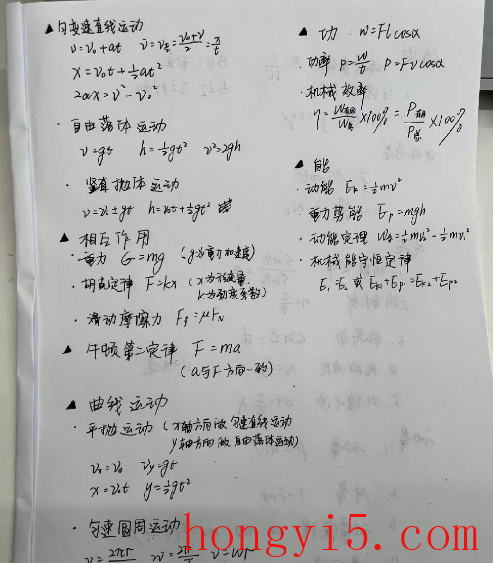 ▲匀变速直线运动
v=v₀+at v̄=v_{t/2}=(v₀+v)/2=x/t
x=v₀t+½at²
2ax=v²-v₀²
·自由落体运动
v=gt h=½gt² v²=2gh
·竖直抛体运动
v=v₀±gt h=v₀t±½gt²
▲相互作用
·重力 G=mg (g为重力加速度)
·胡克定律 F=kx (x为形变量,
k为劲度系数)
·滑动摩擦力 Ff=μFN
▲牛顿第二定律 F=ma
(a与F方向一致)
▲曲线运动
·平抛运动 (x轴方向做匀速直线运动
y轴方向做自由落体运动)
v₀=v₀ vy=gt
x=v₀t y=½gt²
·匀速圆周运动
v=2πr/T w=2π/T v=wr
▲功: W=Flcosα
·功率 P=W/t P=Fvcosα
·机械效率
η=W有用/W总×100%=P有用/P总×100%
▲能
·动能 Ek=½mv²
·重力势能 Ep=mgh
·动能定理 W总=½mv₂²-½mv₁²
·机械能守恒定律
E₁=E₂ 或 Ek₁+Ep₁=Ek₂+Ep₂
hongyi5.com